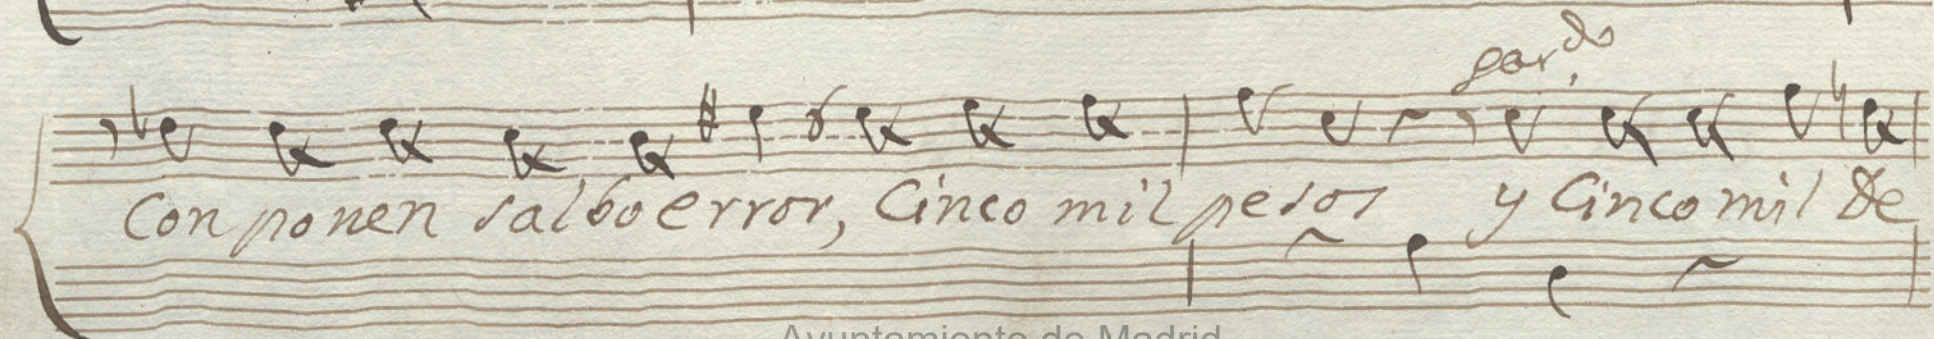 par.do
Con ponen salbo error, Cinco mil pesos y Cinco mil De
Ayuntamiento de Madrid